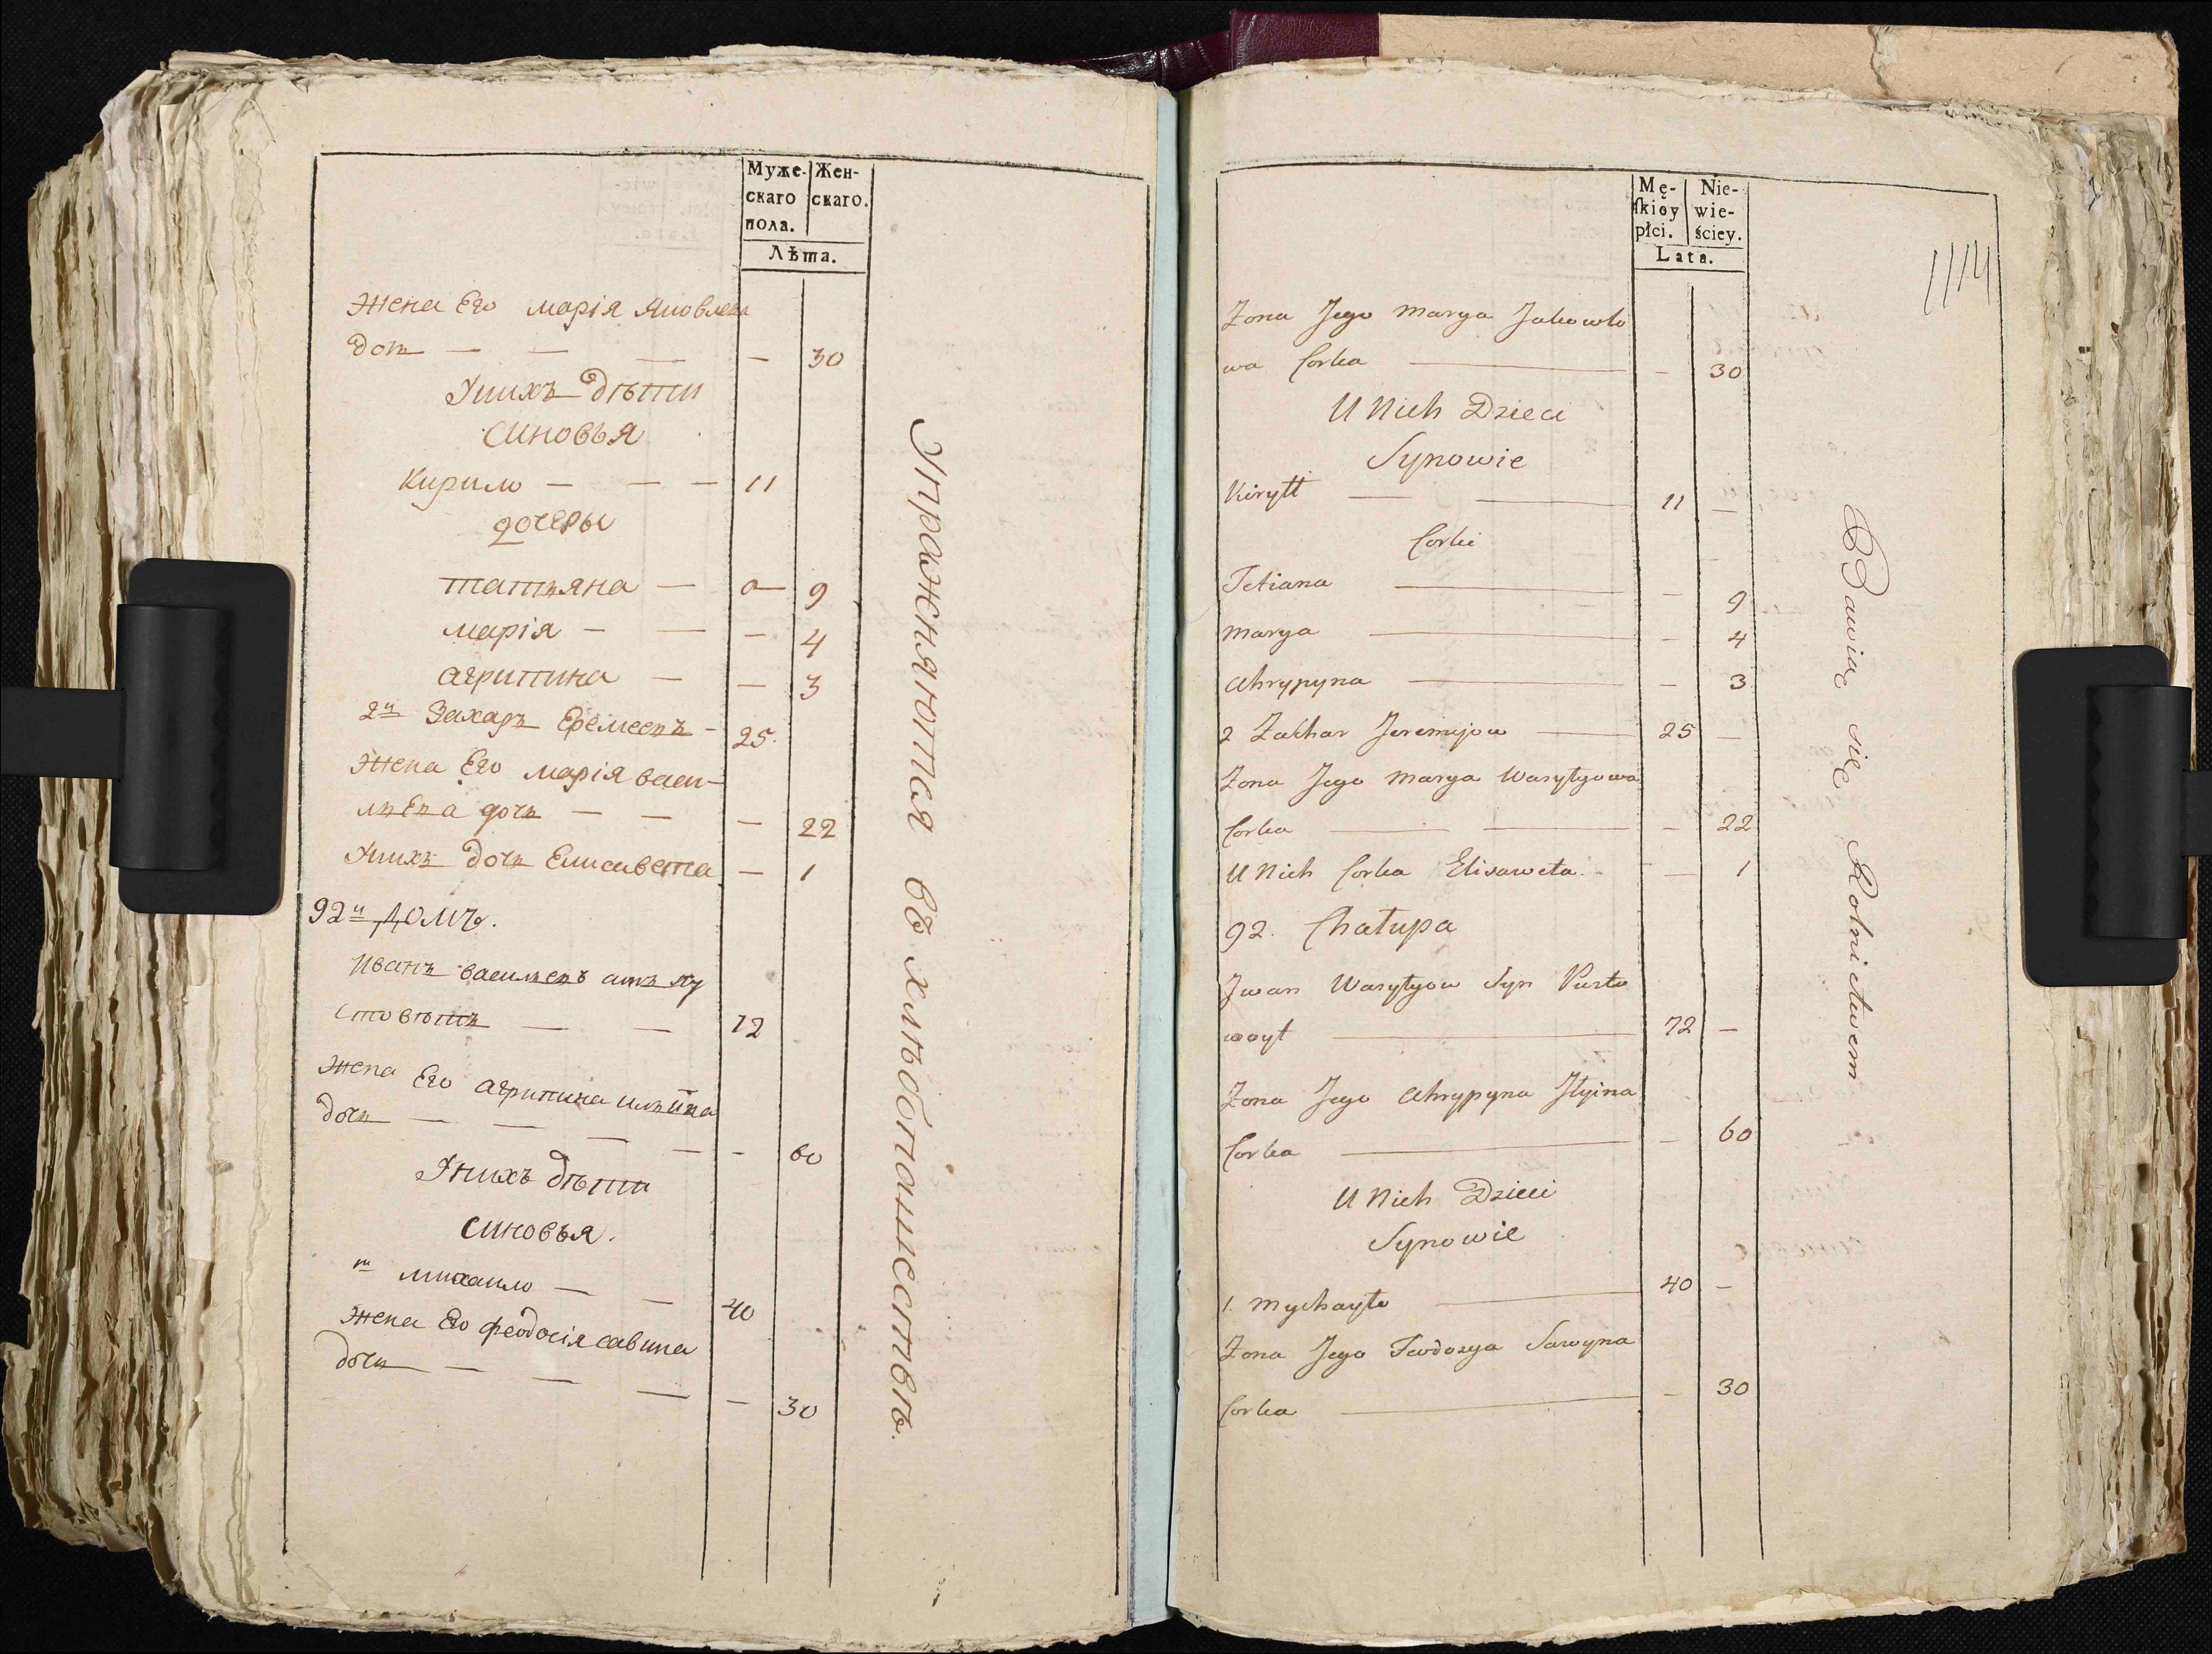 Муже-
скаго
пола.
Жен-
скаго.
Лѣта.
Жена Его марія Яковлева
дочь — — — — 30
Унихъ дѣти
синовья
Кирило — — — 11
дочеры
татьяна — — 9
марія — — — 4
агрипина — — 3
2й Захаръ Еремеевъ — 25.
Жена Его марія васи-
льева дочь — — — 22
Унихъ дочь Елисавета — 1
92й домъ.
Иванъ васильевъ синъ
— — 72
Жена Его агрипина ильина
дочь — — — — — 60
Унихъ дѣти
синовья.
михаило — — 40
Жена Его феодосія савина
дочь — — — — 30
Упражняются въ хлѣбопашествѣ.
Mę-
skiey
płci.
Nie-
wie-
ściey.
Lata.
1114
Żona Jego Marya Jakowlo
wa Corka — — 30
U Nich Dzieci
Synowie
Kiryłł — — 11 —
Corki
Tetiana — — 9
Marya — — 4
Ahrypyna — — 3
2 Zachar Jeremijow — 25 —
Żona Jego Marya Wasylyowa
Corka — — — 22
U Nich Corka Elisaweta. — 1
92. Chałupa
Jwan Wasylyow Syn Pusto
woyt — 72 —
Żona Jego Ahrypyna Jlyina
Corka — — 60
U Nich Dzieci
Synowie
1. Mychayło — 40 —
Żona Jego Feodozya Sawyna
Corka — — 30
Bawią się Rolnictwem